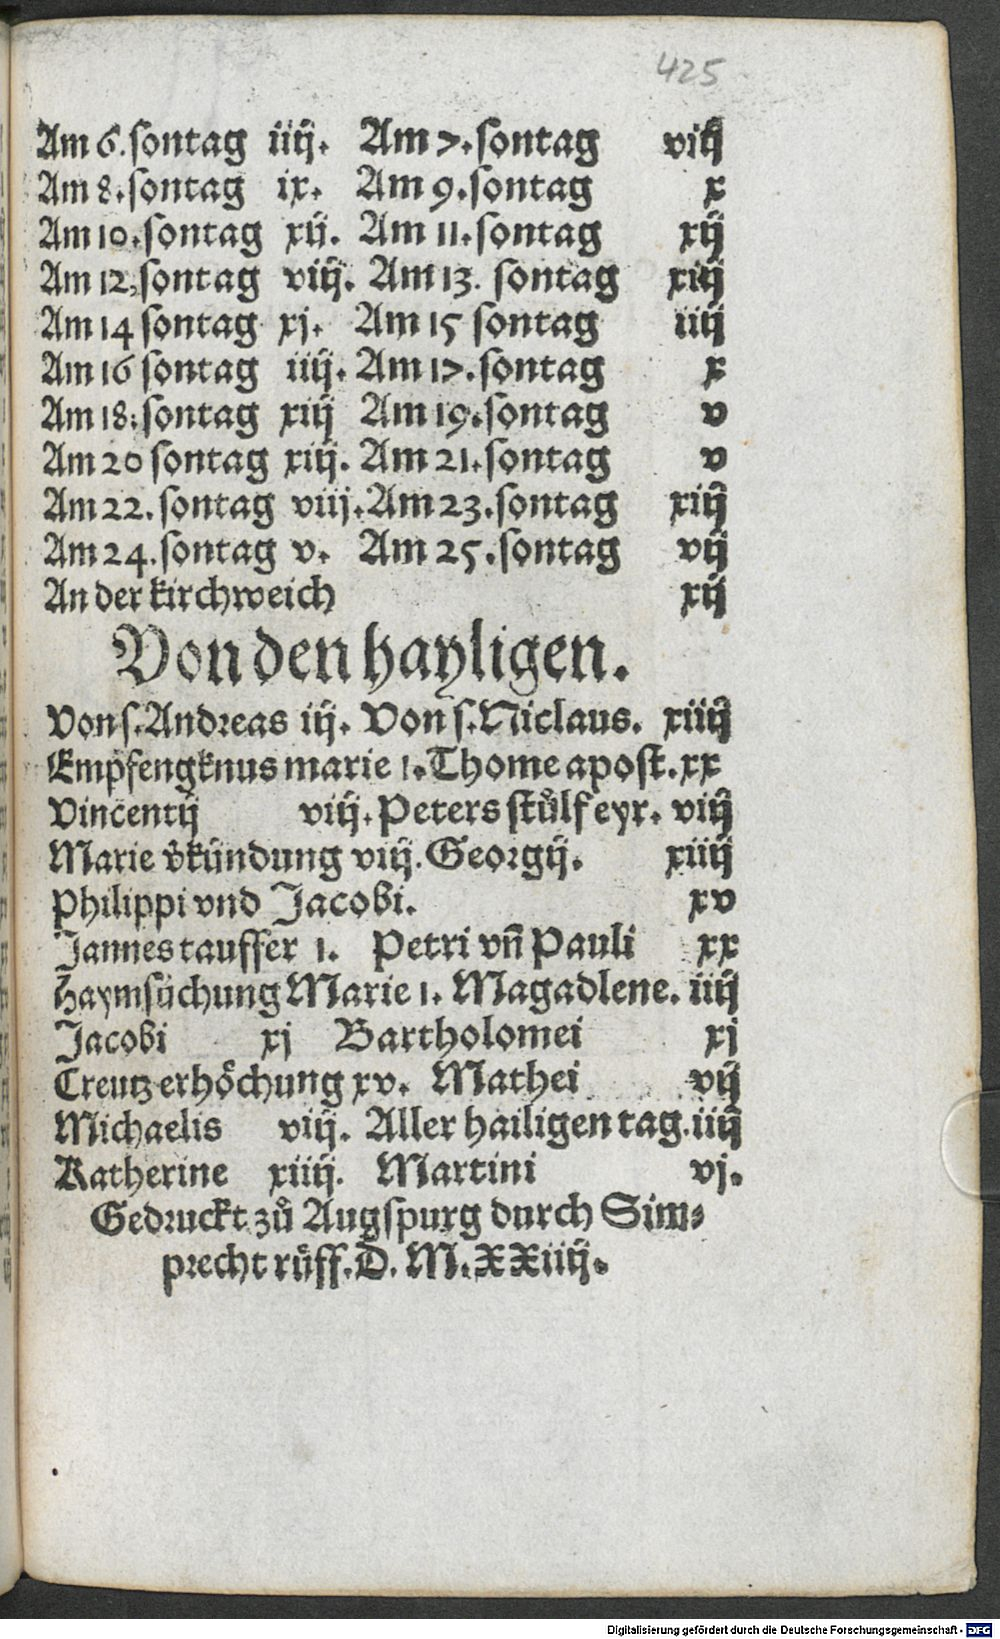 425
Am 6. sontag iiij. Am 7. sontag viij
Am 8. sontag ix. Am 9. sontag x
Am 10. sontag xij. Am 11. sontag xij
Am 12. sontag viij. Am 13. sontag xiij
Am 14 sontag xj. Am 15 sontag iiij
Am 16 sontag iiij. Am 17. sontag x
Am 18. sontag xiij Am 19. sontag v
Am 20 sontag xiij. Am 21. sontag v
Am 22. sontag viij. Am 23. sontag xiij
Am 24. sontag v. Am 25. sontag vij
An der kirchweich xij
Von den hayligen.
Von s. Andreas iij. Von s. Niclaus. xiiij
Empfengknus marie 1. Thome apost. xx
Vincentij viij. Peters stůlfeyr. viij
Marie v̊kündung viij. Georgij. xiiij
Philippi vnd Jacobi. xv
Jannes tauffer 1. Petri vn̄ Pauli xx
Haymsüchung Marie 1. Magadlene. iiij
Jacobi xj Bartholomei xj
Creutz erhöchung xv. Mathei vij
Michaelis viij. Aller hailigen tag. iiij
Katherine xiiij. Martini vj.
Gedruckt zů Augspurg durch Sim⸗
precht růff. D. M. XXiiij.
Digitalisierung gefördert durch die Deutsche Forschungsgemeinschaft - DFG